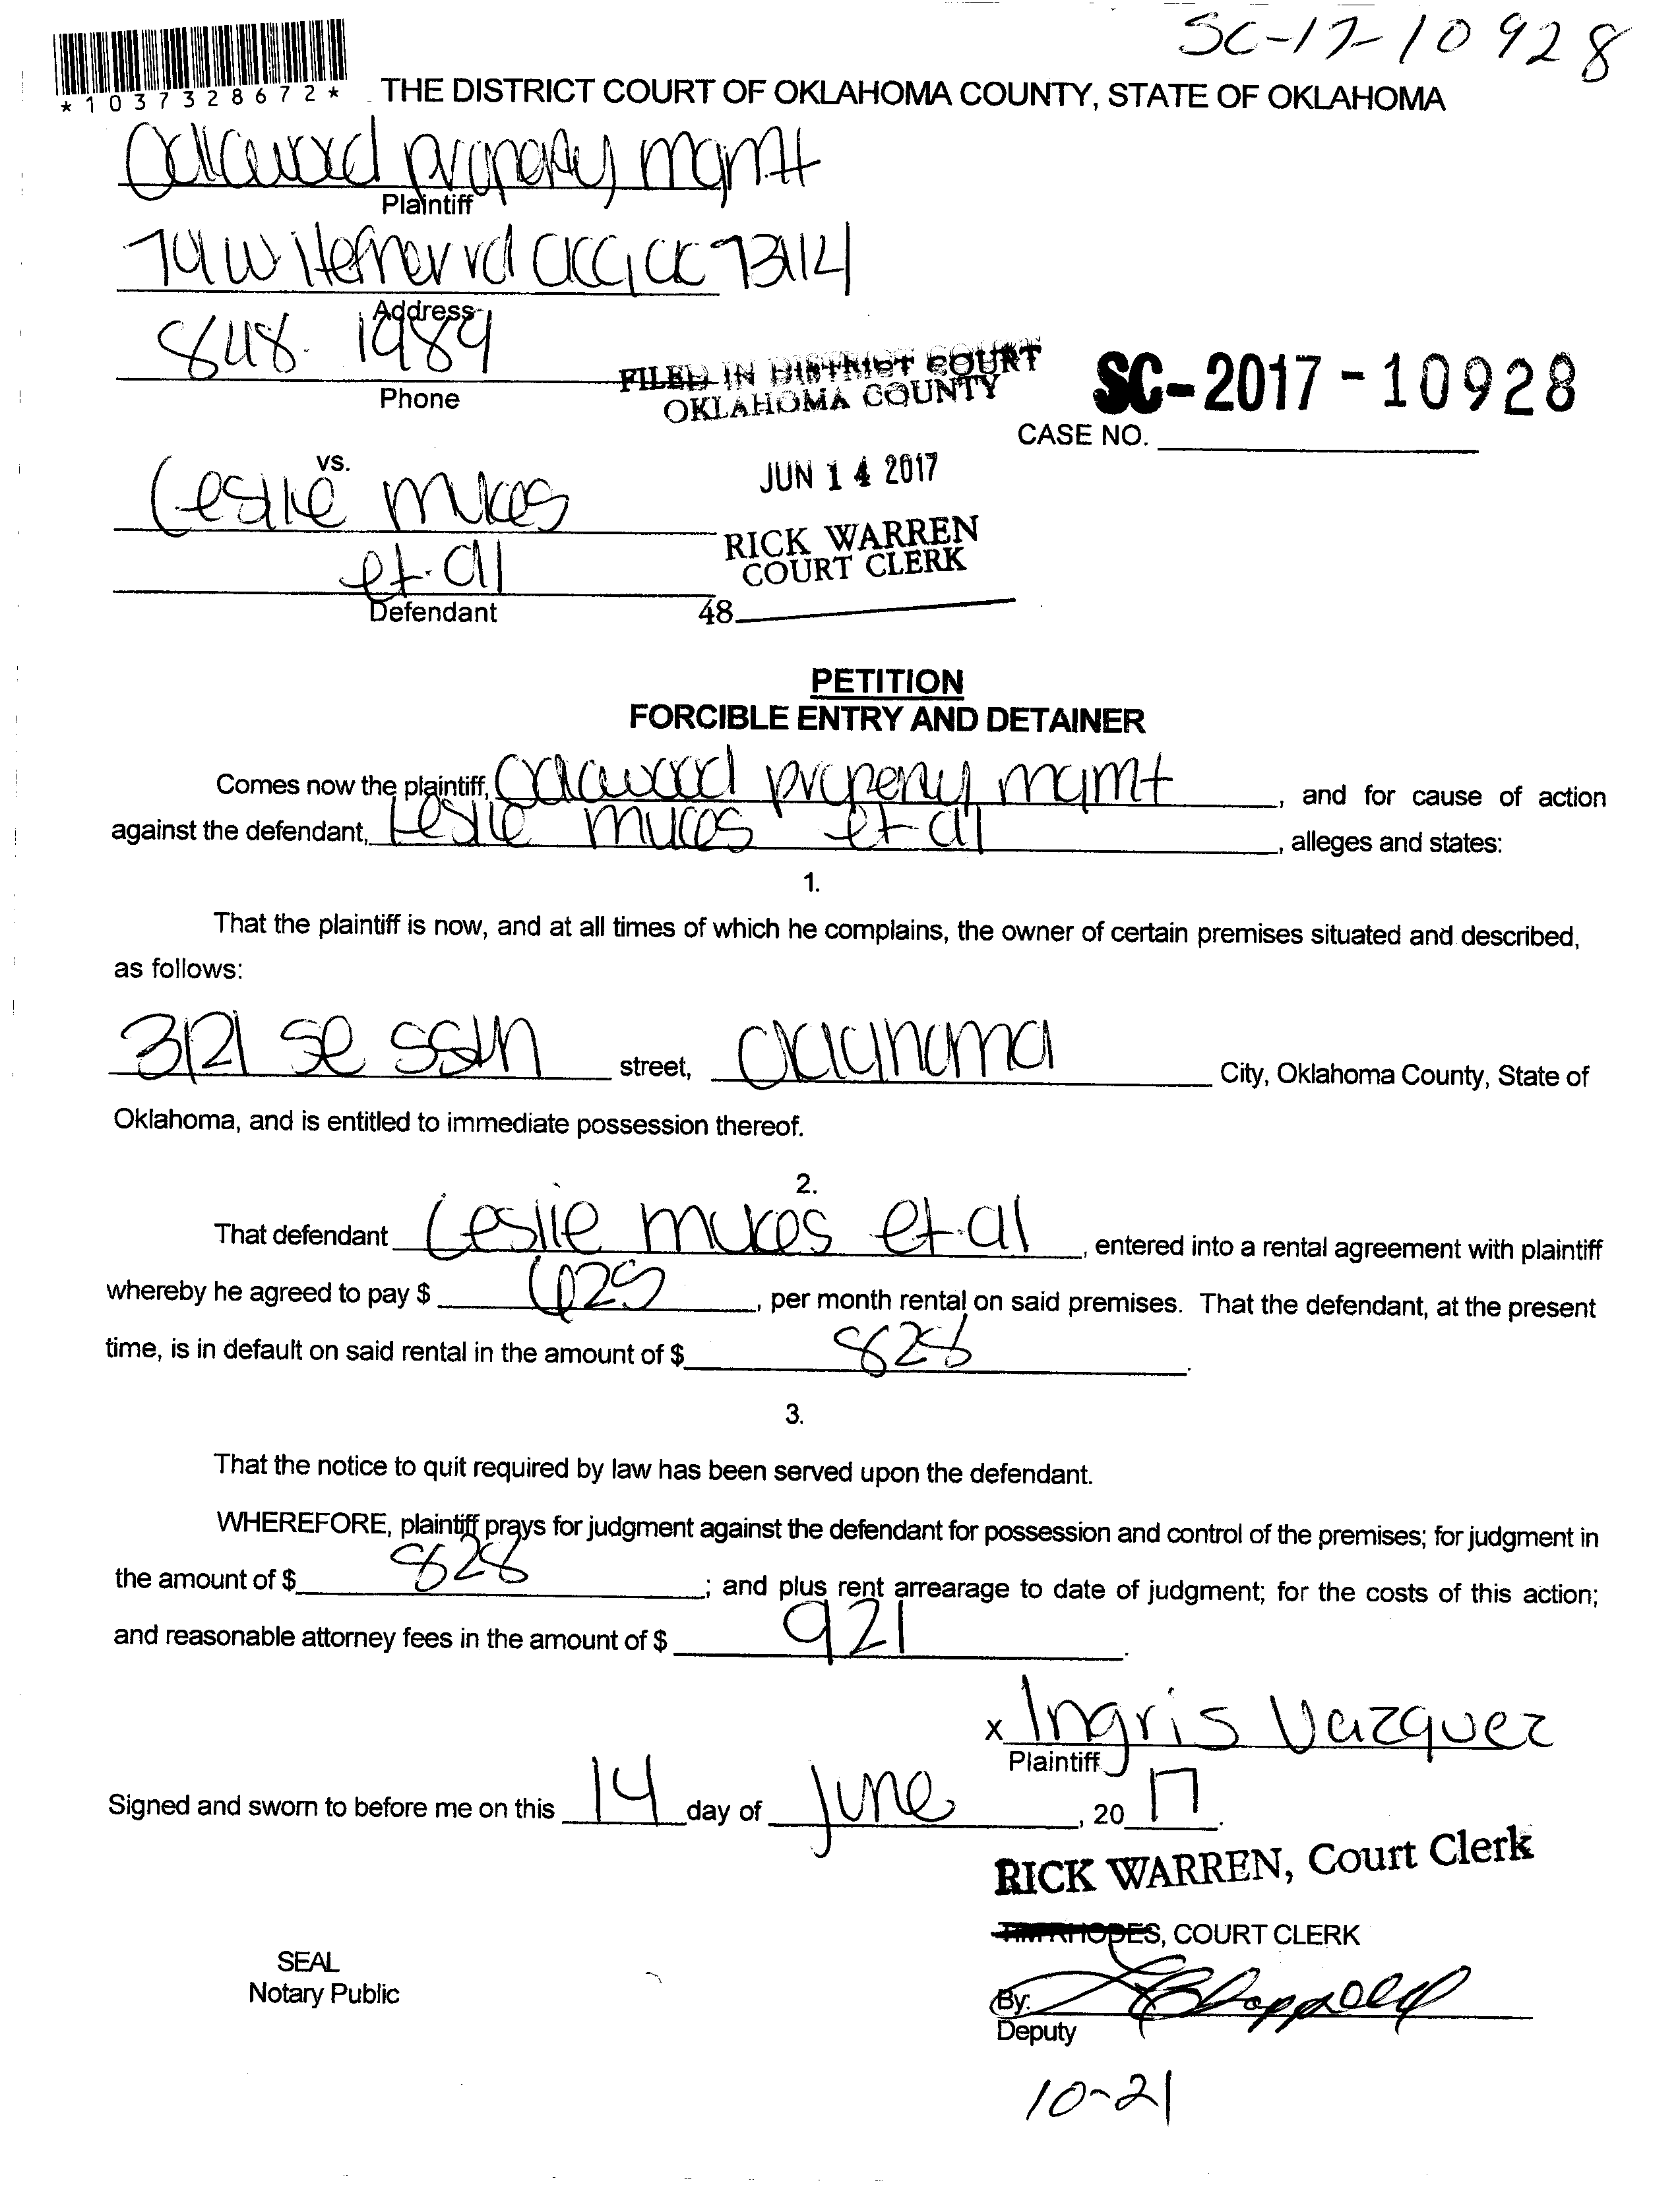 SC-17-10928
*1037328672*
THE DISTRICT COURT OF OKLAHOMA COUNTY, STATE OF OKLAHOMA
Oakwood property mgmt
Plaintiff
74 W Hefner rd OKC, OK 73114
Address
848-1989
Phone
FILED IN DISTRICT COURT
OKLAHOMA COUNTY
SC-2017-10928
CASE NO.
vs.
JUN 14 2017
Leslie mukes
RICK WARREN
COURT CLERK
et. al
Defendant
48
PETITION
FORCIBLE ENTRY AND DETAINER
Comes now the plaintiff, Oakwood property mgmt, and for cause of action
against the defendant, Leslie mukes et al, alleges and states:
1.
That the plaintiff is now, and at all times of which he complains, the owner of certain premises situated and described,
as follows:
3121 se 55th street, Oklahoma City, Oklahoma County, State of
Oklahoma, and is entitled to immediate possession thereof.
2.
That defendant Leslie mukes et-al, entered into a rental agreement with plaintiff
whereby he agreed to pay $ 625, per month rental on said premises. That the defendant, at the present
time, is in default on said rental in the amount of $ 828.
3.
That the notice to quit required by law has been served upon the defendant.
WHEREFORE, plaintiff prays for judgment against the defendant for possession and control of the premises; for judgment in
the amount of $ 828; and plus rent arrearage to date of judgment; for the costs of this action;
and reasonable attorney fees in the amount of $ 921.
x Ingris Vazquez
Plaintiff
Signed and sworn to before me on this 14 day of June, 2017.
RICK WARREN, Court Clerk
COURT CLERK
SEAL
Notary Public
By: Chappell
Deputy
10-21